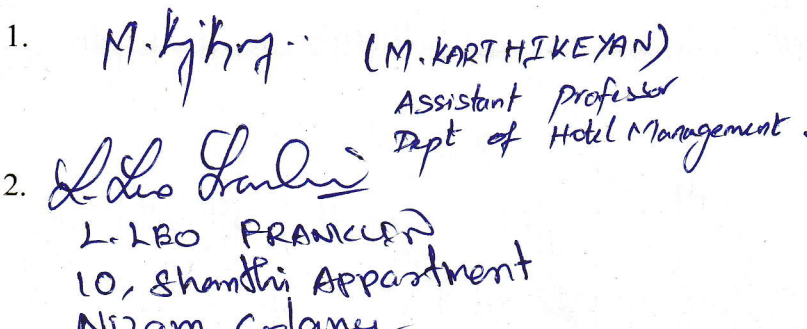 1. M. (M. KARTHIKEYAN)
Assistant Professor
Dept of Hotel Management.
2. L. Leo Franklin
L. LEO FRANKLIN
10, Shanthi Appartment
Nizam Colany